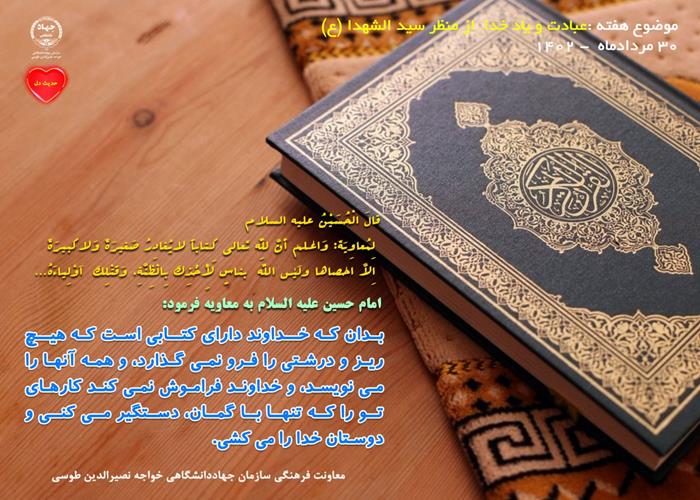 موضوع هفته :عبادت و یاد خدا از منظر سید الشهدا (ع)
۳۰ مردادماه – ۱۴۰۲
جهاد
حدیث دل
قالَ الْحُسَیْنُ علیه السلام
لِمُعاوِیَة: وَاعلم أنَّ للّه تعالی کتاباً لایُغادرُ صَغیرَةً وَلا کَبیرَةً
إلاّ أحصاها ولَیْسَ اللّهُ بناسٍ لأخْذِکَ بِالظِّنَّةِ، وَقَتْلِکَ أوْلِیاءَهُ...
امام حسین علیه السلام به معاویه فرمود:
بدان که خداوند دارای کتابی است که هیچ
ریز و درشتی را فرو نمی گذارد، و همه آنها را
می نویسد، و خداوند فراموش نمی کند کارهای
تو را که تنها با گمان، دستگیر می کنی و
دوستان خدا را می کشی.
معاونت فرهنگی سازمان جهاددانشگاهی خواجه نصیرالدین طوسی